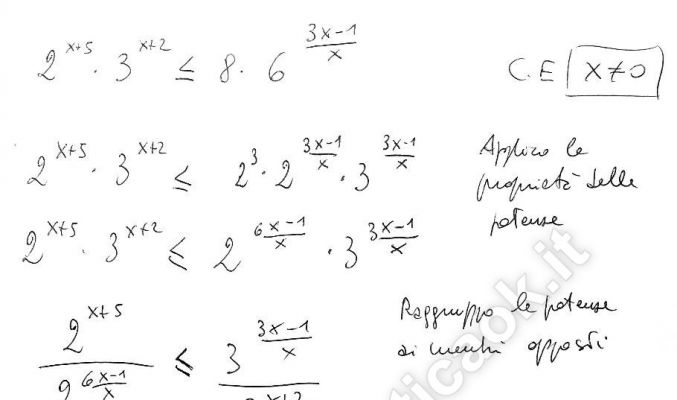 2^(x+5) · 3^(x+2) ≤ 8 · 6^((3x-1)/x)
C.E x≠0
2^(x+5) · 3^(x+2) ≤ 2^3 · 2^((3x-1)/x) · 3^((3x-1)/x)
Applico le
proprietà delle
potenze
2^(x+5) · 3^(x+2) ≤ 2^((6x-1)/x) · 3^((3x-1)/x)
Raggruppo le potenze
ai membri opposti
2^(x+5) / 2^((6x-1)/x) ≤ 3^((3x-1)/x) /
ticaok.it